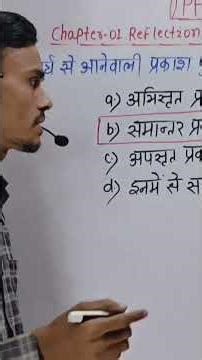 Chapter-01 Reflection
से आनेवाली प्रकाश
a) अभिसृत
b) समान्तर
c) अपसृत
d) इनमें से